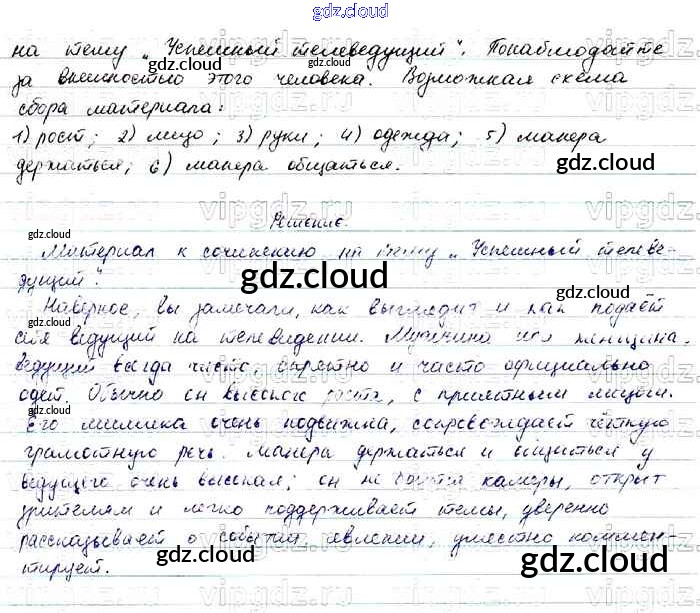 gdz.cloud
на тему „Успешный телеведущий". Понаблюдайте
за внешностью этого человека. Возможная схема
сбора материала:
1) рост; 2) лицо; 3) руки; 4) одежда; 5) манера
держаться; 6) манера общаться.
gdz.cloud
Решение.
Материал к сочинению на тему „Успешный телеве-
дущий".
gdz.cloud
Наверное, вы замечали, как выглядит и как подаёт
себя ведущий на телевидении. Мужчина или женщина.
ведущий всегда чисто, опрятно и часто официально
одет. Обычно он высокого роста, с приятным лицом.
Его мимика очень подвижна, сопровождает чёткую
грамотную речь. Манера держаться и общаться у
ведущего очень высокая; он не боится камеры, открыт
зрителям и легко поддерживает темы, уверенно
рассказывает о событии, явлении, уместно коммен-
тирует.
gdz.cloud